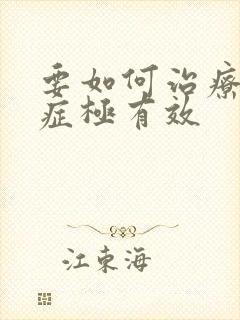 要如何治療
症極有效
江東海